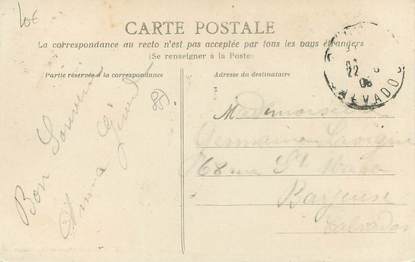 20€
CARTE POSTALE
La correspondance au recto n'est pas acceptée par tous les pays étrangers
(Se renseigner à la Poste)
Partie réservée à la correspondance
Adresse du destinataire
22
08
CALVADOS
Bon Souvenir
Mademoiselle
Germaine
rue St
Bayeux
Calvados